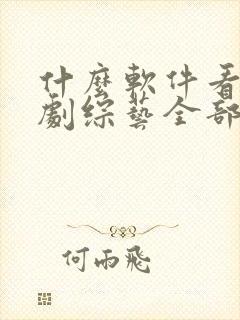 什麼軟件看
劇綜藝全部
何雨飛